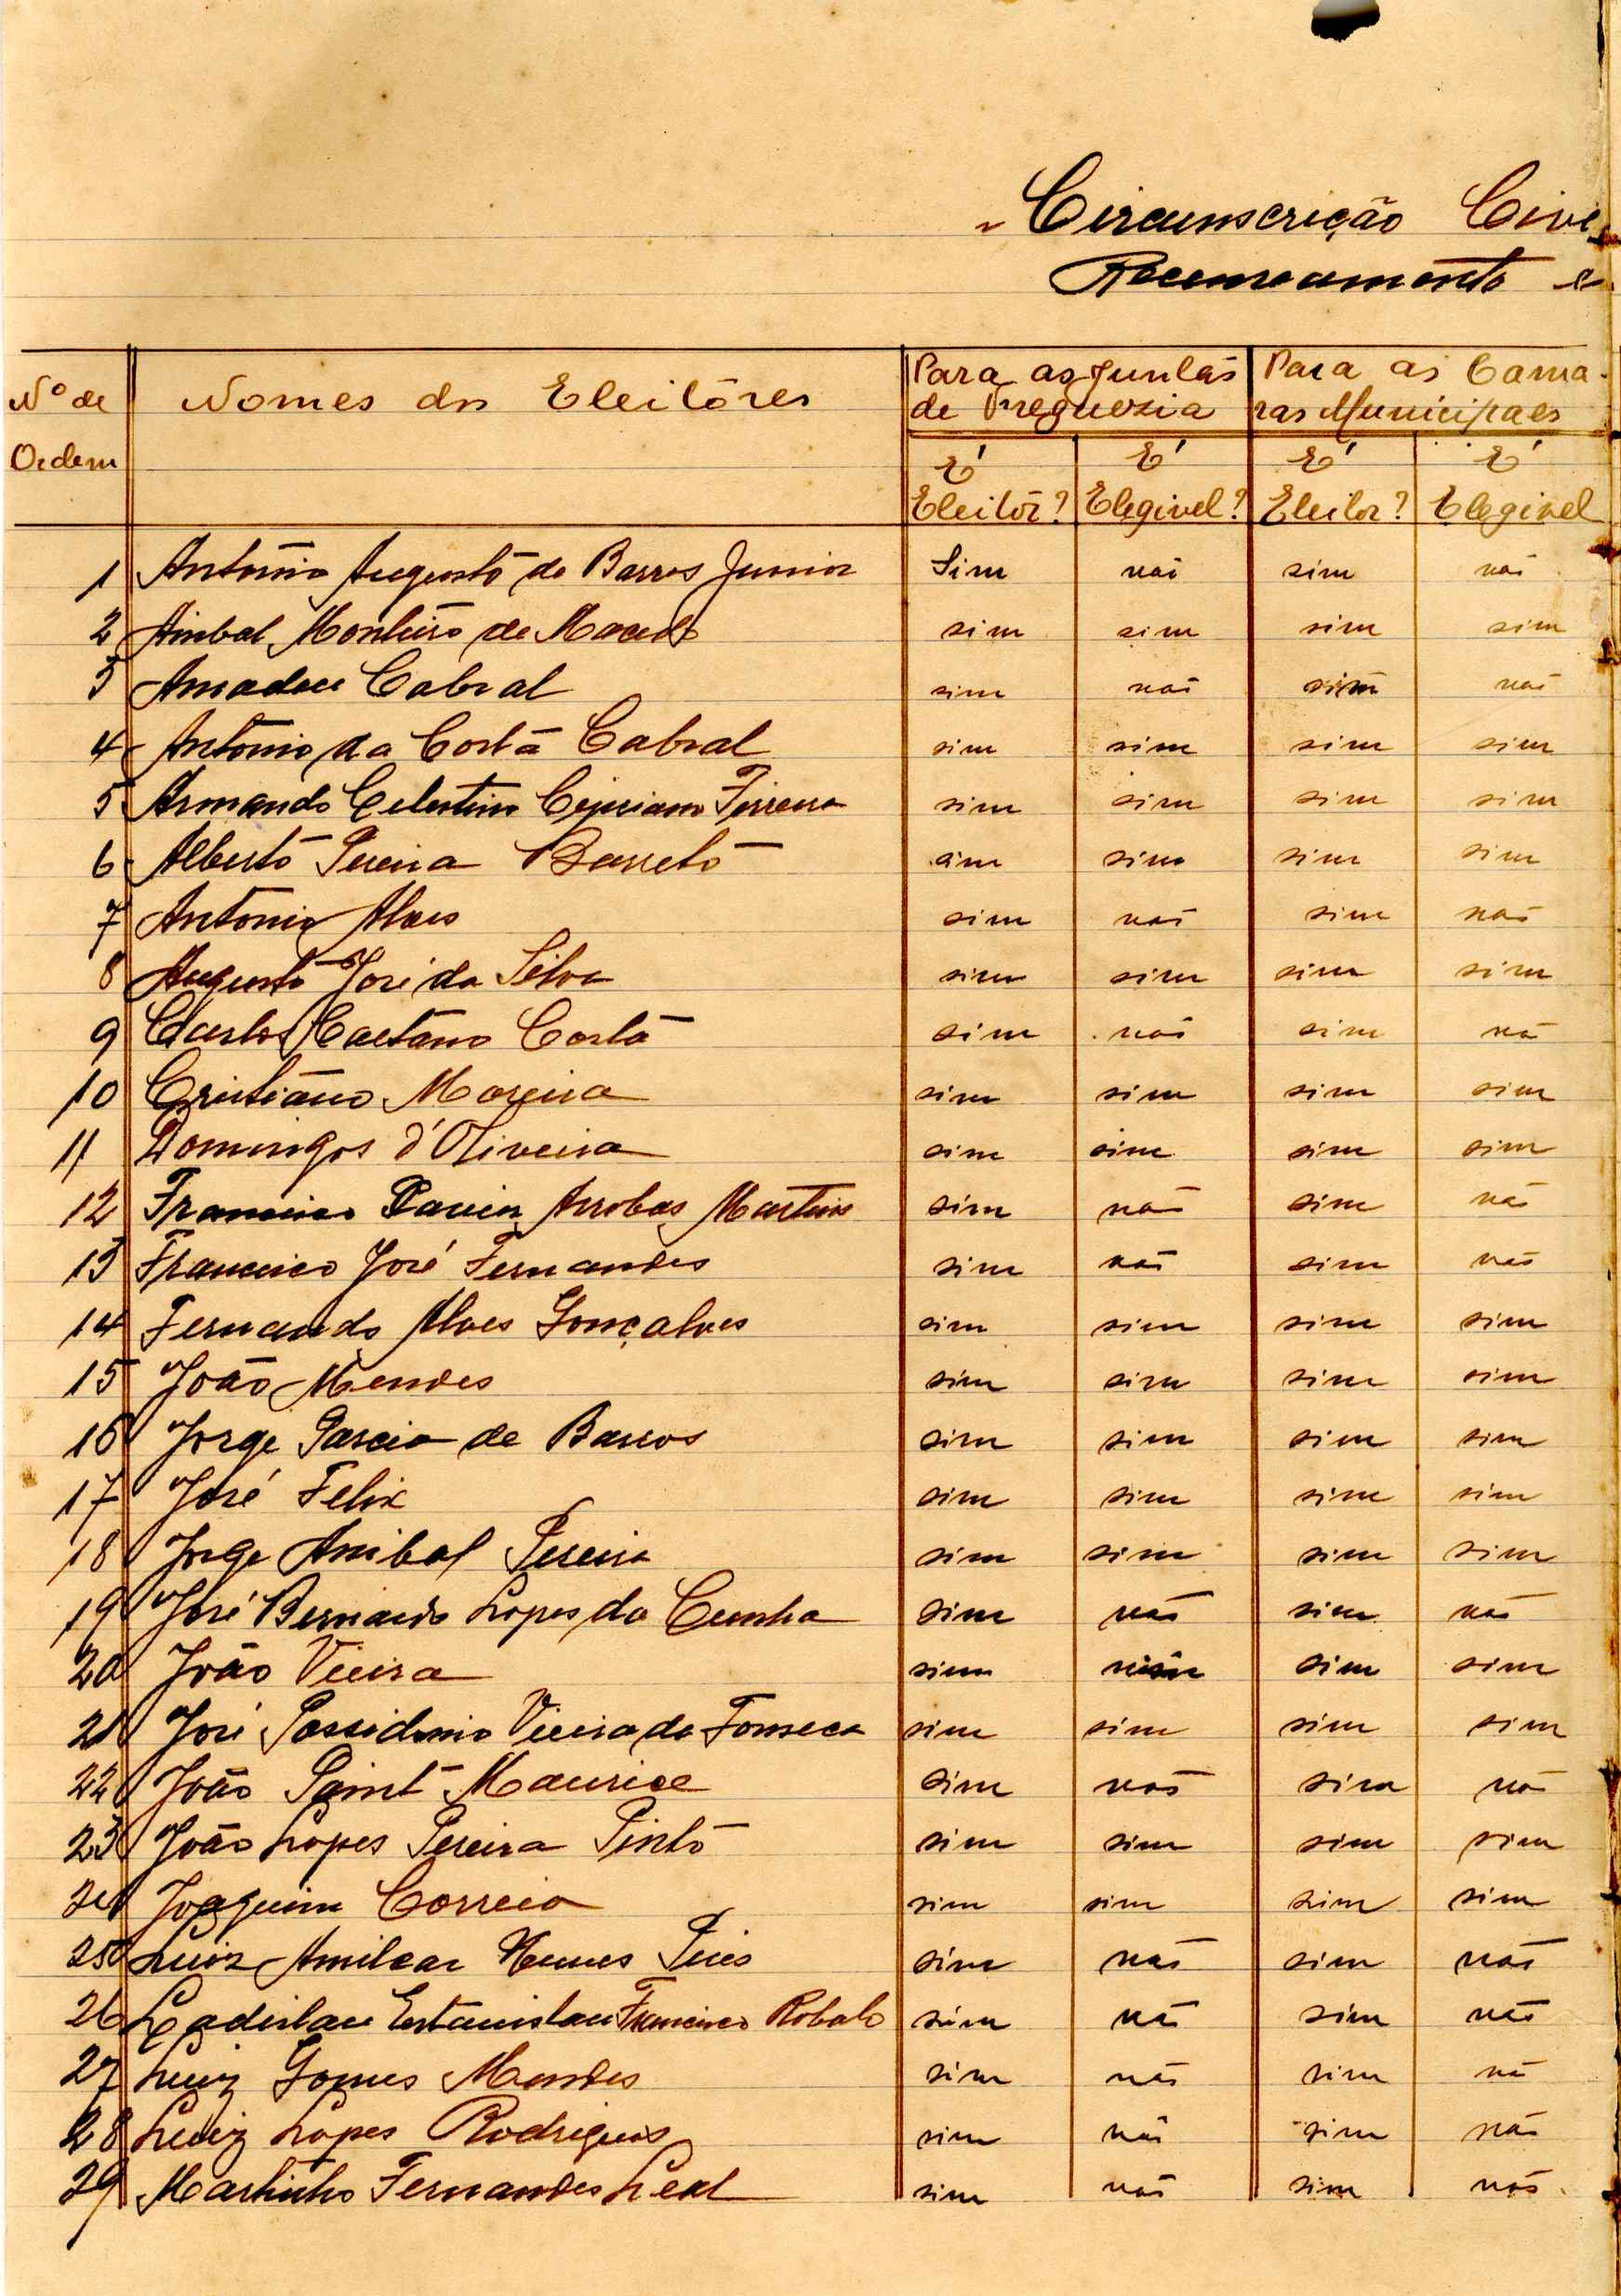 Circunscrição Civi
Recenseamento e
Nº de Ordem Nomes dos Eleitores Para as Juntas de Freguezia Para as Camaras Municipaes
E' Eleitor? E' Elegivel? E' Eleitor? E' Elegivel
1 Antonio Augusto de Barros Junior Sim não sim não
2 Anibal Monteiro de Macedo sim sim sim sim
3 Amadeu Cabral sim não sim não
4 Antonio da Costa Cabral sim sim sim sim
5 Armando Celestino Cipriano Ferreira sim sim sim sim
6 Alberto Pereira Barreto sim sim sim sim
7 Antonio Alves sim não sim não
8 Augusto José da Silva sim sim sim sim
9 Carlos Caetano Costa sim não sim não
10 Cristiano Moreira sim sim sim sim
11 Domingos d'Oliveira sim sim sim sim
12 Francisco Xavier Arrobas Martins sim não sim não
13 Francisco José Fernandes sim não sim não
14 Fernando Alves Gonçalves sim sim sim sim
15 João Mendes sim sim sim sim
16 Jorge Garcia de Barros sim sim sim sim
17 José Felix sim sim sim sim
18 Jorge Anibal Pereira sim sim sim sim
19 José Bernardo Lopes da Cunha sim não sim não
20 João Vieira sim sim sim
21 José Possidonio Vieira da Fonseca sim sim sim sim
22 João Saint-Maurice sim não sim não
23 João Lopes Pereira Pinto sim sim sim sim
24 Joaquim Correia sim sim sim sim
25 Luiz Amilcar Nunes Pires sim não sim não
26 Ladislau Estanislau Francisco Robalo sim não sim não
27 Luiz Gomes Mendes sim não sim não
28 Luiz Lopes Rodrigues sim não sim não
29 Martinho Fernandes Leal sim não sim não